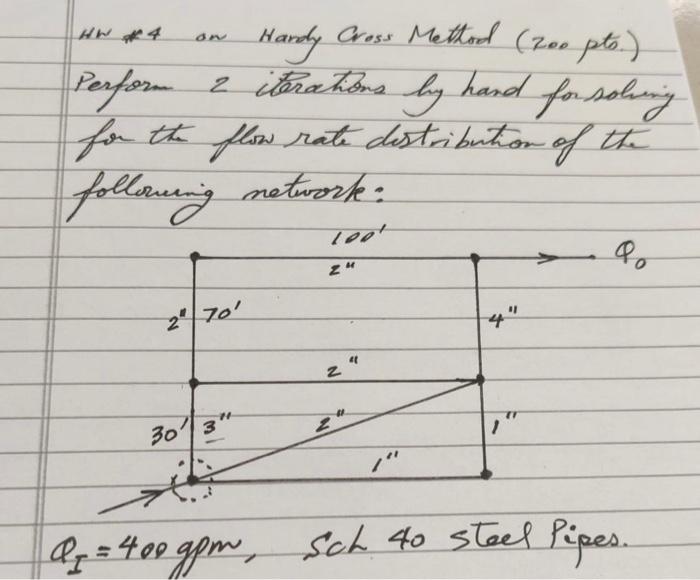 HW #4 on Hardy Cross Method (200 pts.)
Perform 2 iterations by hand for solving
for the flow rate distribution of the
following network:
100'
2"
Q₀
2" 70'
4"
2"
30' 3"
2"
1"
1"
Q_I = 400 gpm, Sch 40 steel Pipes.